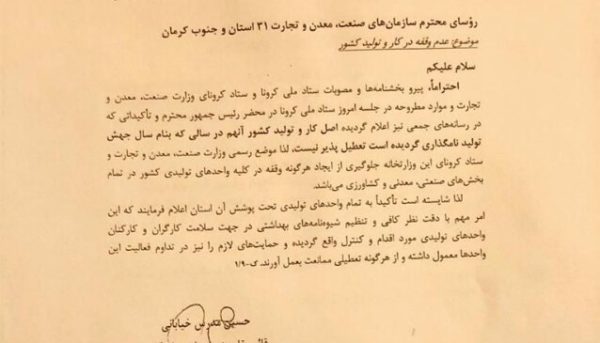 رؤسای محترم سازمان‌های صنعت، معدن و تجارت ۳۱ استان و جنوب کرمان
موضوع: عدم وقفه در کار و تولید کشور
سلام علیکم
احتراماً، پیرو بخشنامه‌ها و مصوبات ستاد ملی کرونا و ستاد کرونای وزارت صنعت، معدن و
تجارت و موارد مطروحه در جلسه امروز ستاد ملی کرونا در محضر رئیس جمهور محترم و تأکیداتی که
در رسانه‌های جمعی نیز اعلام گردیده اصل کار و تولید کشور آنهم در سالی که بنام سال جهش
تولید نامگذاری گردیده است تعطیل پذیر نیست، لذا موضع رسمی وزارت صنعت، معدن و تجارت و
ستاد کرونای این وزارتخانه جلوگیری از ایجاد هرگونه وقفه در کلیه واحدهای تولیدی کشور در تمام
بخش‌های صنعتی، معدنی و کشاورزی می‌باشد.
لذا شایسته است تأکیداً به تمام واحدهای تولیدی تحت پوشش آن استان اعلام فرمایند که این
امر مهم با دقت نظر کافی و تنظیم شیوه‌نامه‌های بهداشتی در جهت سلامت کارگران و کارکنان
واحدهای تولیدی مورد اقدام و کنترل واقع گردیده و حمایت‌های لازم را نیز در تداوم فعالیت این
واحدها معمول داشته و از هرگونه تعطیلی ممانعت بعمل آورند. ک-۱/۹
حسین مدرس خیابانی